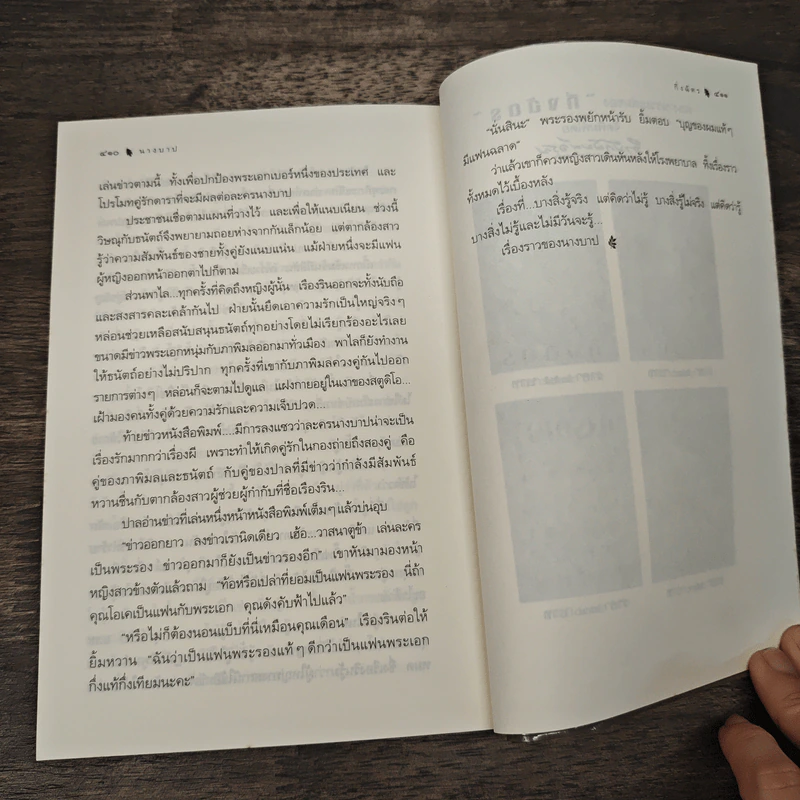 ๔๑๐ นางบาป
เล่นข่าวตามนี้ ทั้งเพื่อปกป้องพระเอกเบอร์หนึ่งของประเทศ และ
โปรโมทคู่รักดาราที่จะมีผลต่อละครนางบาป
ประชาชนเชื่อตามแผนที่วางไว้ และเพื่อให้แนบเนียน ช่วงนี้
วิษณุกับธนัตถ์จึงพยายามถอยห่างจากกันเล็กน้อย แต่ตากล้องสาว
รู้ว่าความสัมพันธ์ของชายทั้งคู่ยังแนบแน่น แม้ฝ่ายหนึ่งจะมีแฟน
ผู้หญิงออกหน้าออกตาไปก็ตาม
ส่วนพาไล...ทุกครั้งที่คิดถึงหญิงผู้นั้น เรืองรินออกจะทั้งนับถือ
และสงสารคละเคล้ากันไป ฝ่ายนั้นยึดเอาความรักเป็นใหญ่จริงๆ
หล่อนช่วยเหลือสนับสนุนธนัตถ์ทุกอย่างโดยไม่เรียกร้องอะไรเลย
ขนาดมีข่าวพระเอกหนุ่มกับภาพิมลออกมาทั่วเมือง พาไลก็ยังทำงาน
ให้ธนัตถ์อย่างไม่ปริปาก ทุกครั้งที่เขากับภาพิมลควงคู่กันไปออก
รายการต่างๆ หล่อนก็จะตามไปดูแล แฝงกายอยู่ในเงาของสตูดิโอ...
เฝ้ามองคนทั้งคู่ด้วยความรักและความเจ็บปวด...
ท้ายข่าวหนังสือพิมพ์....มีการลงแซวว่าละครนางบาปน่าจะเป็น
เรื่องรักมากกว่าเรื่องผี เพราะทำให้เกิดคู่รักในกองถ่ายถึงสองคู่ คือ
คู่ของภาพิมลและธนัตถ์ กับคู่ของปาลที่มีข่าวว่ากำลังมีสัมพันธ์
หวานชื่นกับตากล้องสาวผู้ช่วยผู้กำกับที่ชื่อเรืองริน...
ปาลอ่านข่าวที่เล่นหนึ่งหน้าหนังสือพิมพ์เต็มๆ แล้วบ่นอุบ
“ข่าวออกยาว ลงข่าวเรานิดเดียว เฮ้อ...วาสนาตูข้า เล่นละคร
เป็นพระรอง ข่าวออกมาก็ยังเป็นข่าวรองอีก” เขาหันมามองหน้า
หญิงสาวข้างตัวแล้วถาม “ท้อหรือเปล่าที่ยอมเป็นแฟนพระรอง นี่ถ้า
คุณโอเคเป็นแฟนกับพระเอก คุณดังคับฟ้าไปแล้ว”
“หรือไม่ก็ต้องนอนแบ็บที่นี่เหมือนคุณเดือน” เรืองรินต่อให้
ยิ้มหวาน “ฉันว่าเป็นแฟนพระรองแท้ๆ ดีกว่าเป็นแฟนพระเอก
กึ่งแท้กึ่งเทียมนะคะ”
๔๑๑
“นั่นสินะ” พระรองพยักหน้ารับ ยิ้มตอบ “บุญของผมแท้ๆ
มีแฟนฉลาด”
ว่าแล้วเขาก็ควงหญิงสาวเดินหันหลังให้โรงพยาบาล ทิ้งเรื่องราว
ทั้งหมดไว้เบื้องหลัง
เรื่องที่...บางสิ่งรู้จริง แต่คิดว่าไม่รู้ บางสิ่งรู้ไม่จริง แต่คิดว่ารู้
บางสิ่งไม่รู้และไม่มีวันจะรู้...
เรื่องราวของนางบาป